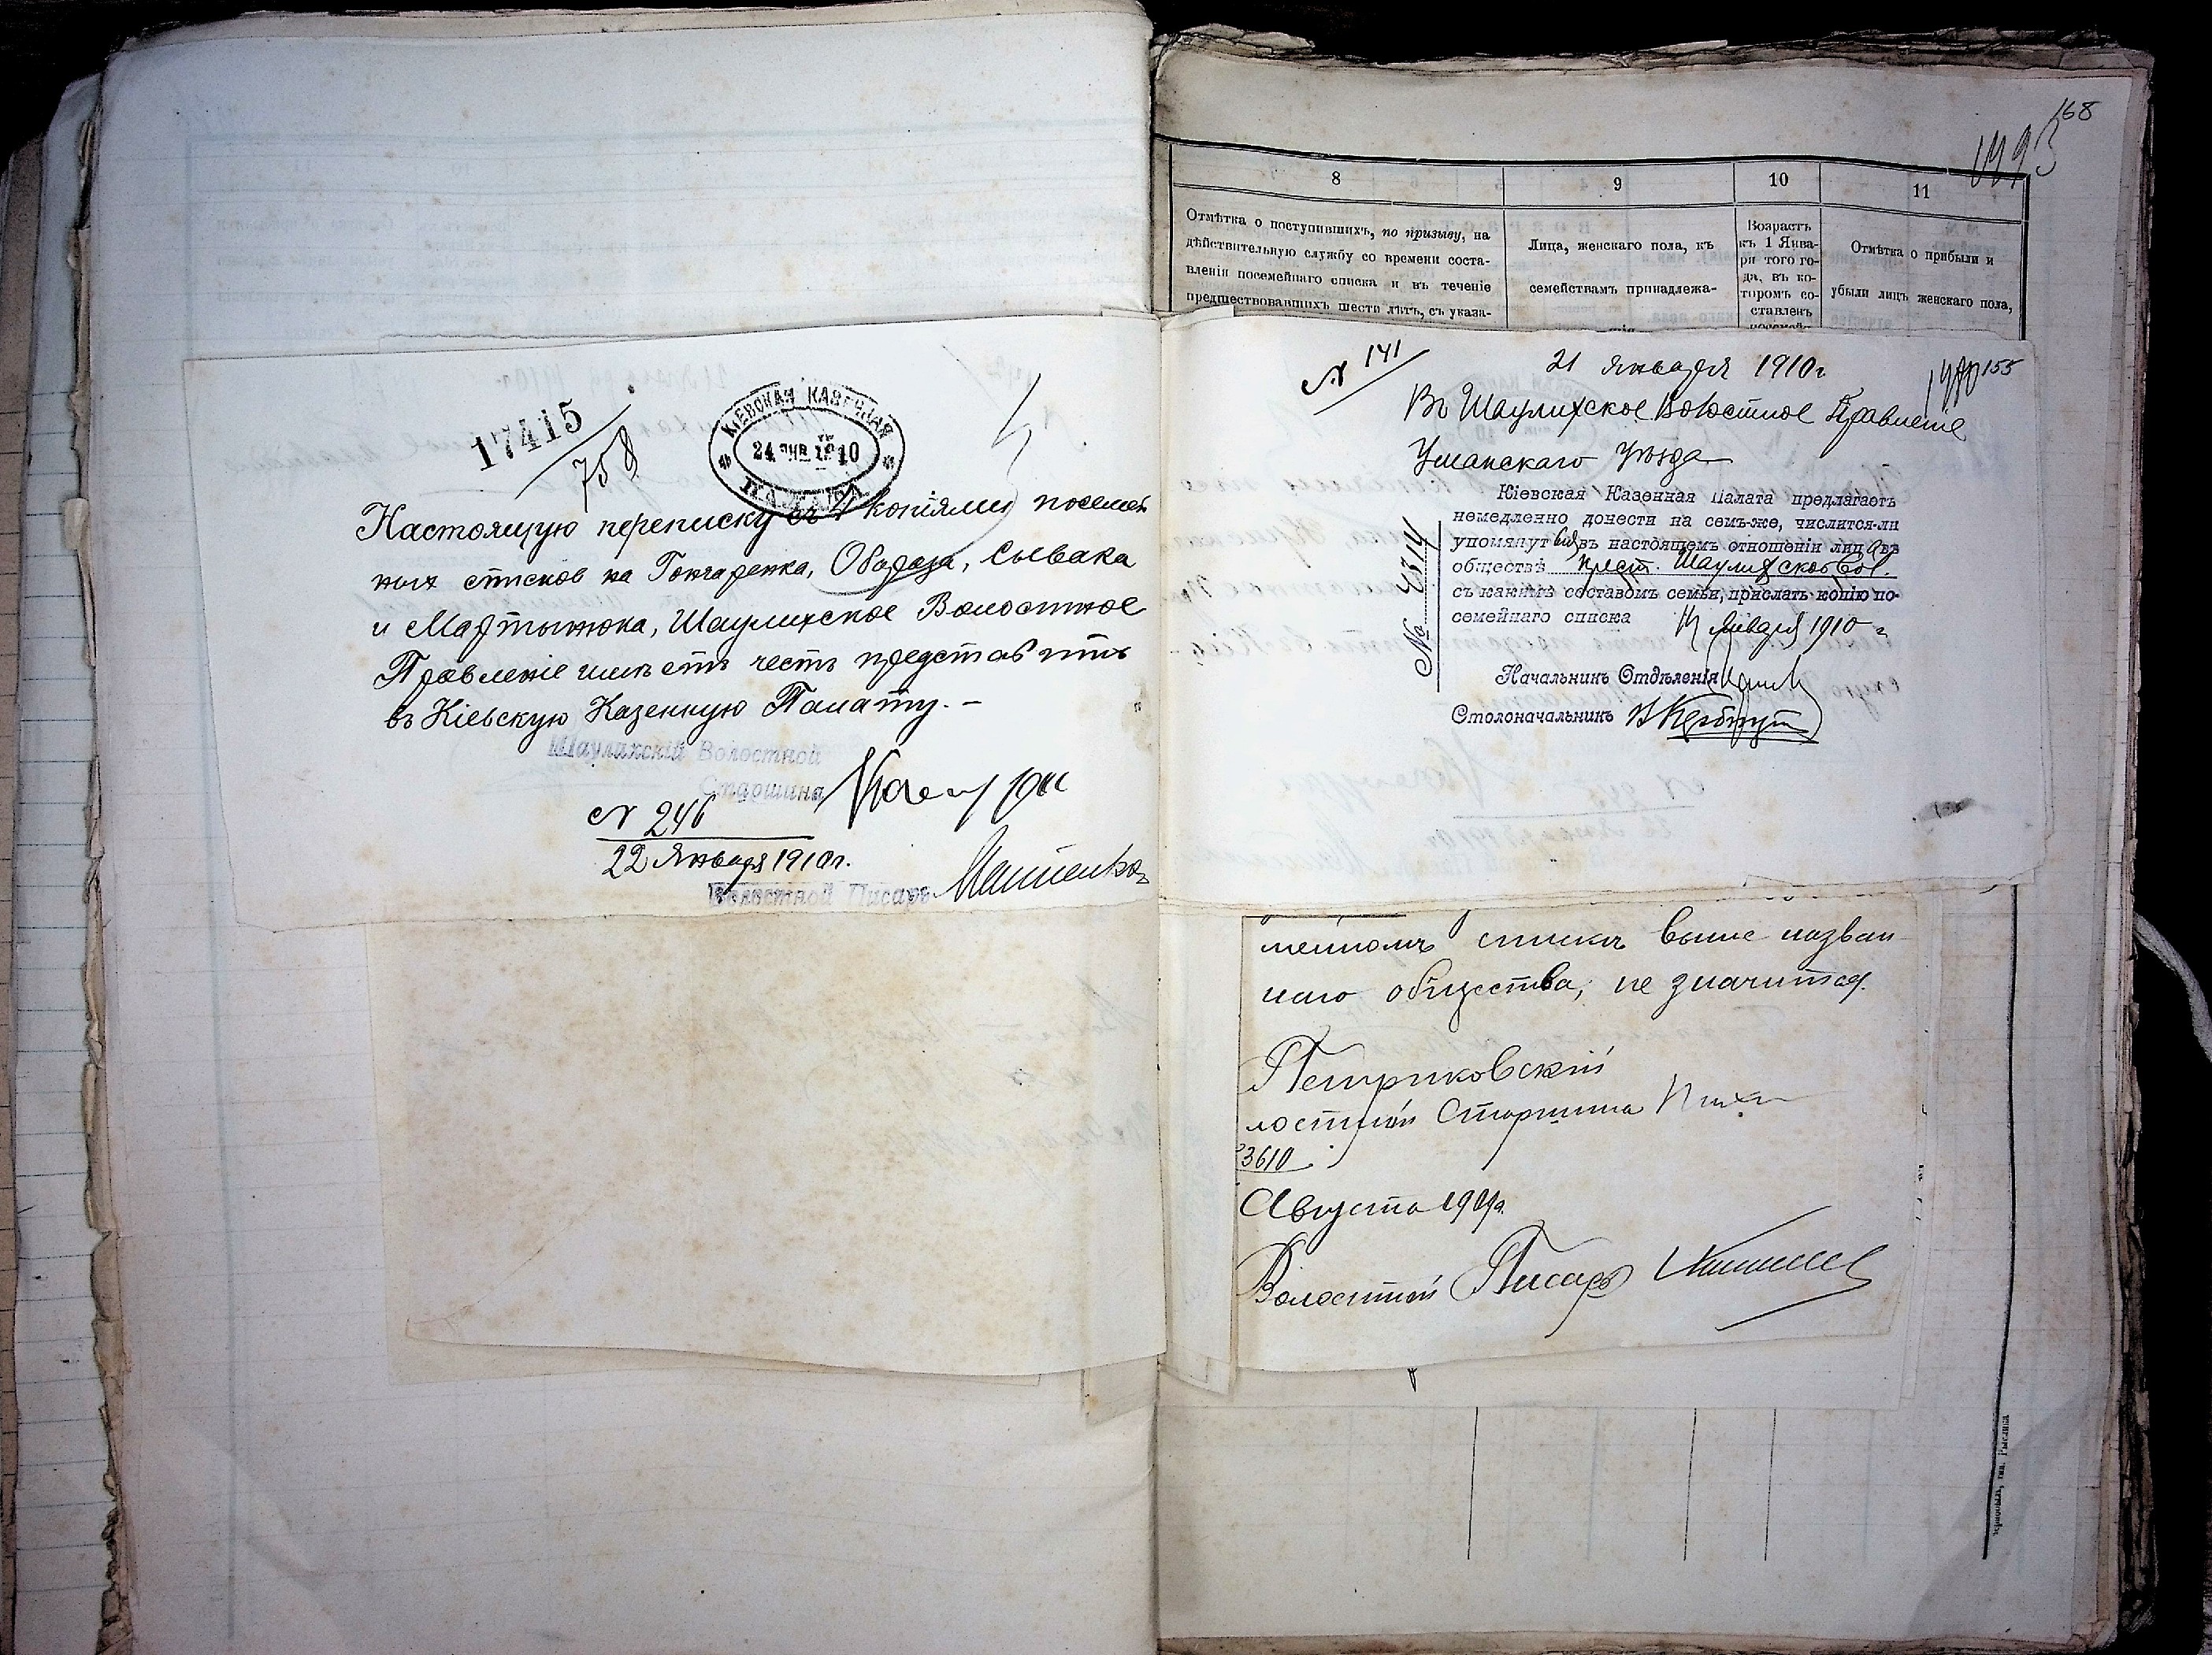 17415
758
КІЕВСКАЯ КАЗЕННАЯ
24 ЯНВ 1910
ПАЛАТА
Настоящую переписку съ 4 копіями посемей
ныхъ списковъ на Гончаренка, Обараза, Сывака
и Мартынюка, Шаулихское Волостное
Правленіе имѣетъ честь представить
въ Кіевскую Казенную Палату.-
Шаулихскій Волостной
Старшина
N 246
22 Января 1910г.
Волостной Писарь
168
8
9
10
11
Отмѣтка о поступившихъ, по призыву, на
дѣйствительную службу со времени соста-
вленія посемейнаго списка и въ теченіе
предшествовавшихъ шести лѣтъ, съ указа-
Лица, женскаго пола, къ
семействамъ принадлежа-
Возрастъ
къ 1 Янва-
ря того го-
да, въ ко-
торомъ со-
ставленъ
Отмѣтка о прибыли и
убыли лицъ женскаго пола,
N 141
21 Января 1910г
155
Въ Шаулихское Волостное Правленіе
Уманскаго Уѣзда
Кіевская Казенная Палата предлагаетъ
немедленно донести на семъ-же, числится-ли
упомянут въ настоящемъ отношеніи лиц въ
обществѣ крест. Шаулихской Вол.
съ какимъ составомъ семьи, прислать копію по-
семейнаго списка Января 1910 г
№ 4314
Начальникъ Отдѣленія
Столоначальникъ
мейномъ спискѣ выше назван-
наго общества, не значится.
Петриковскій
лостной Старшина
3610
Августа 1909г.
Волостной Писарь